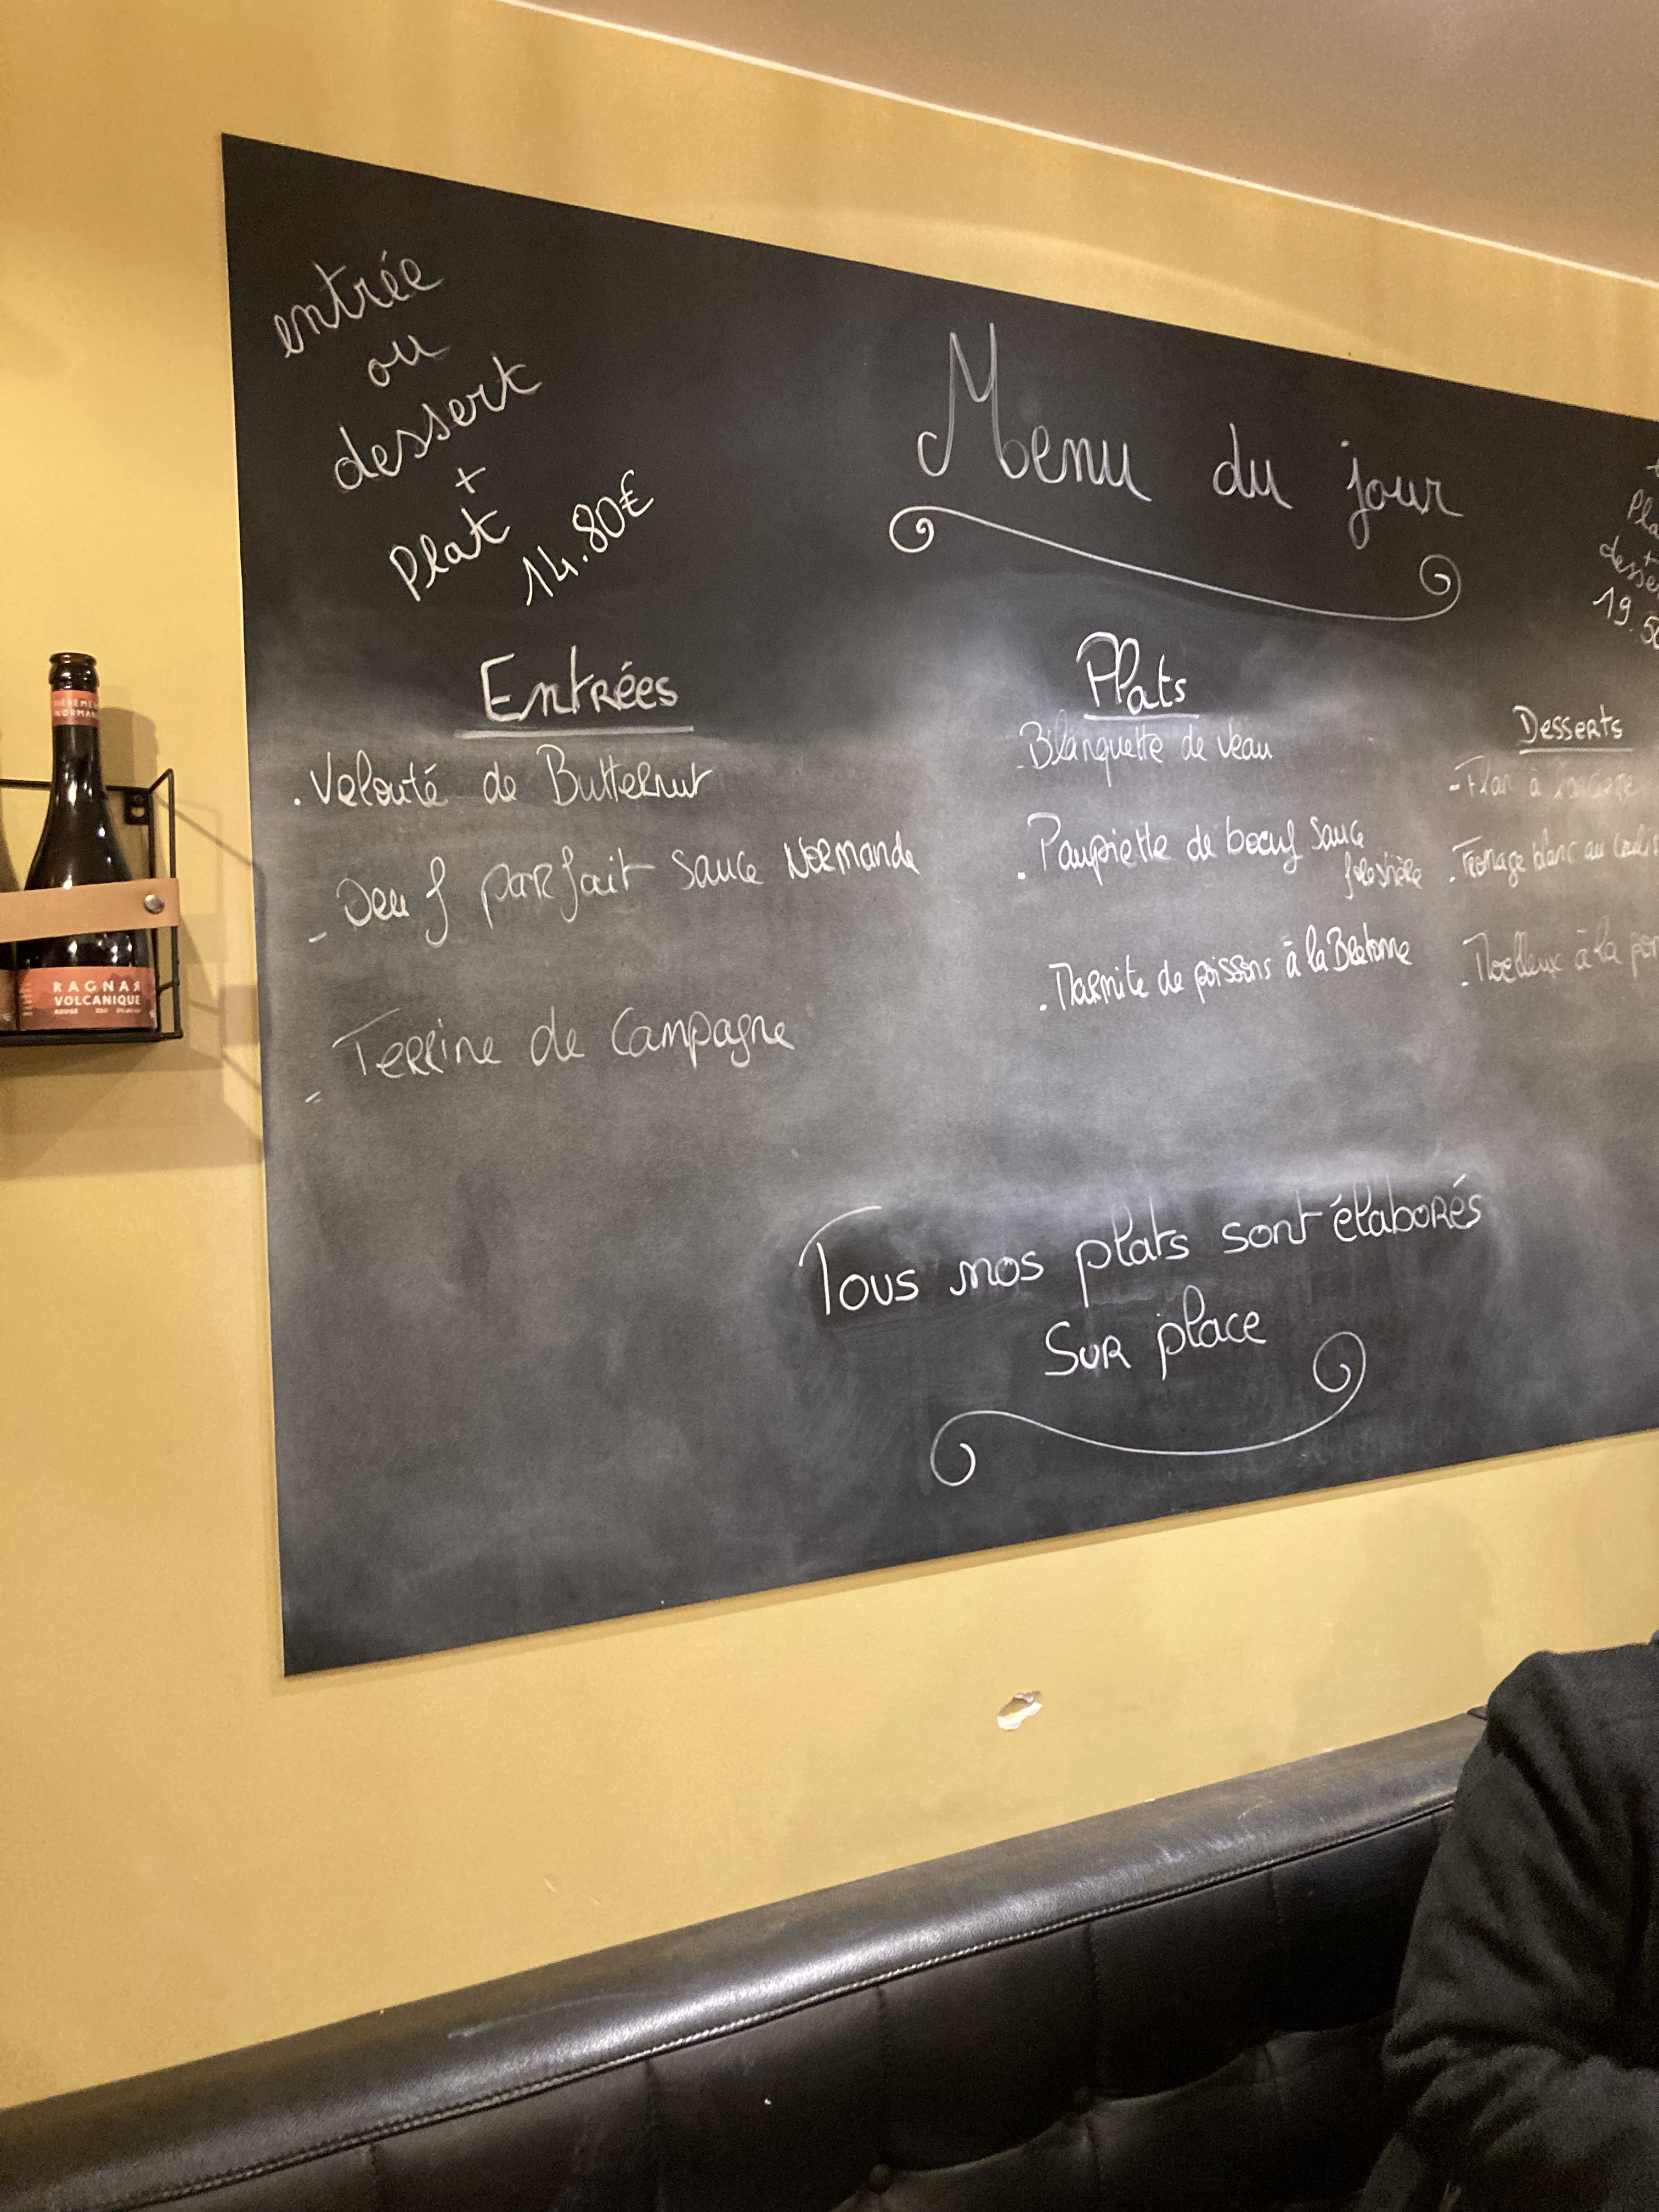 entrée
ou
dessert
+
Plat
14.80€
Menu du jour
+
19.50
Entrées
. Velouté de Butternut
- Oeuf parfait sauce Normande
- Terrine de Campagne
Plats
- Blanquette de veau
. Paupiette de boeuf sauce
forestière
. Marmite de poissons à la Bretonne
Desserts
- Flan à
. Fromage blanc au coulis
. Moelleux à la
Tous nos plats sont élaborés
Sur place
RAGNAR
VOLCANIQUE
ROUGE